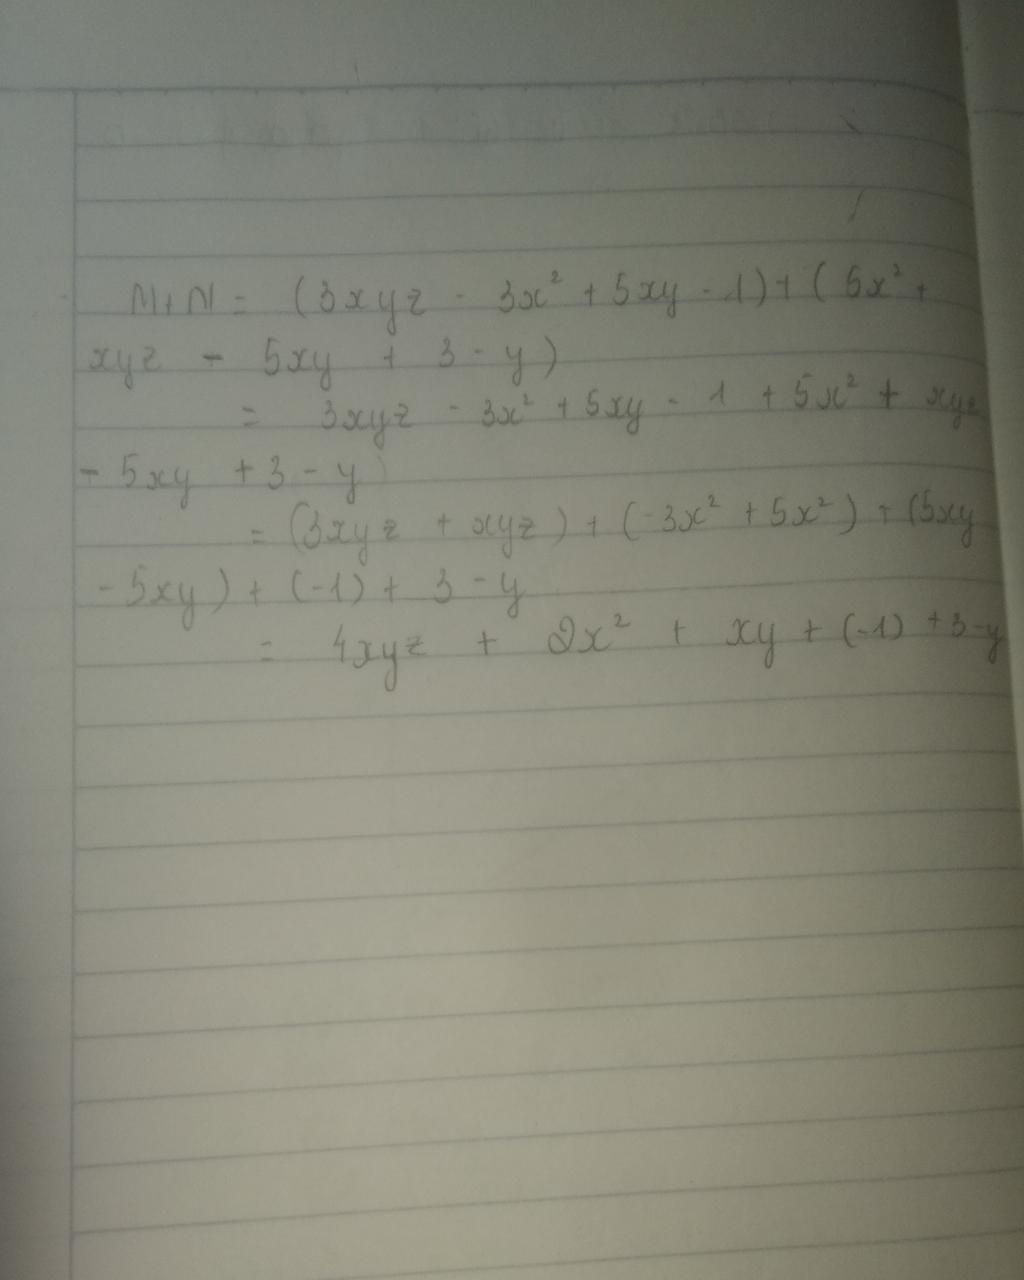 M+N = (3xyz - 3x² + 5xy - 1) + (5x² +
xyz - 5xy + 3 - y)
= 3xyz - 3x² + 5xy - 1 + 5x² + xyz
- 5xy + 3 - y
= (3xyz + xyz) + (-3x² + 5x²) + (5xy
- 5xy) + (-1) + 3 - y
= 4xyz + 2x² + xy + (-1) + 3 - y